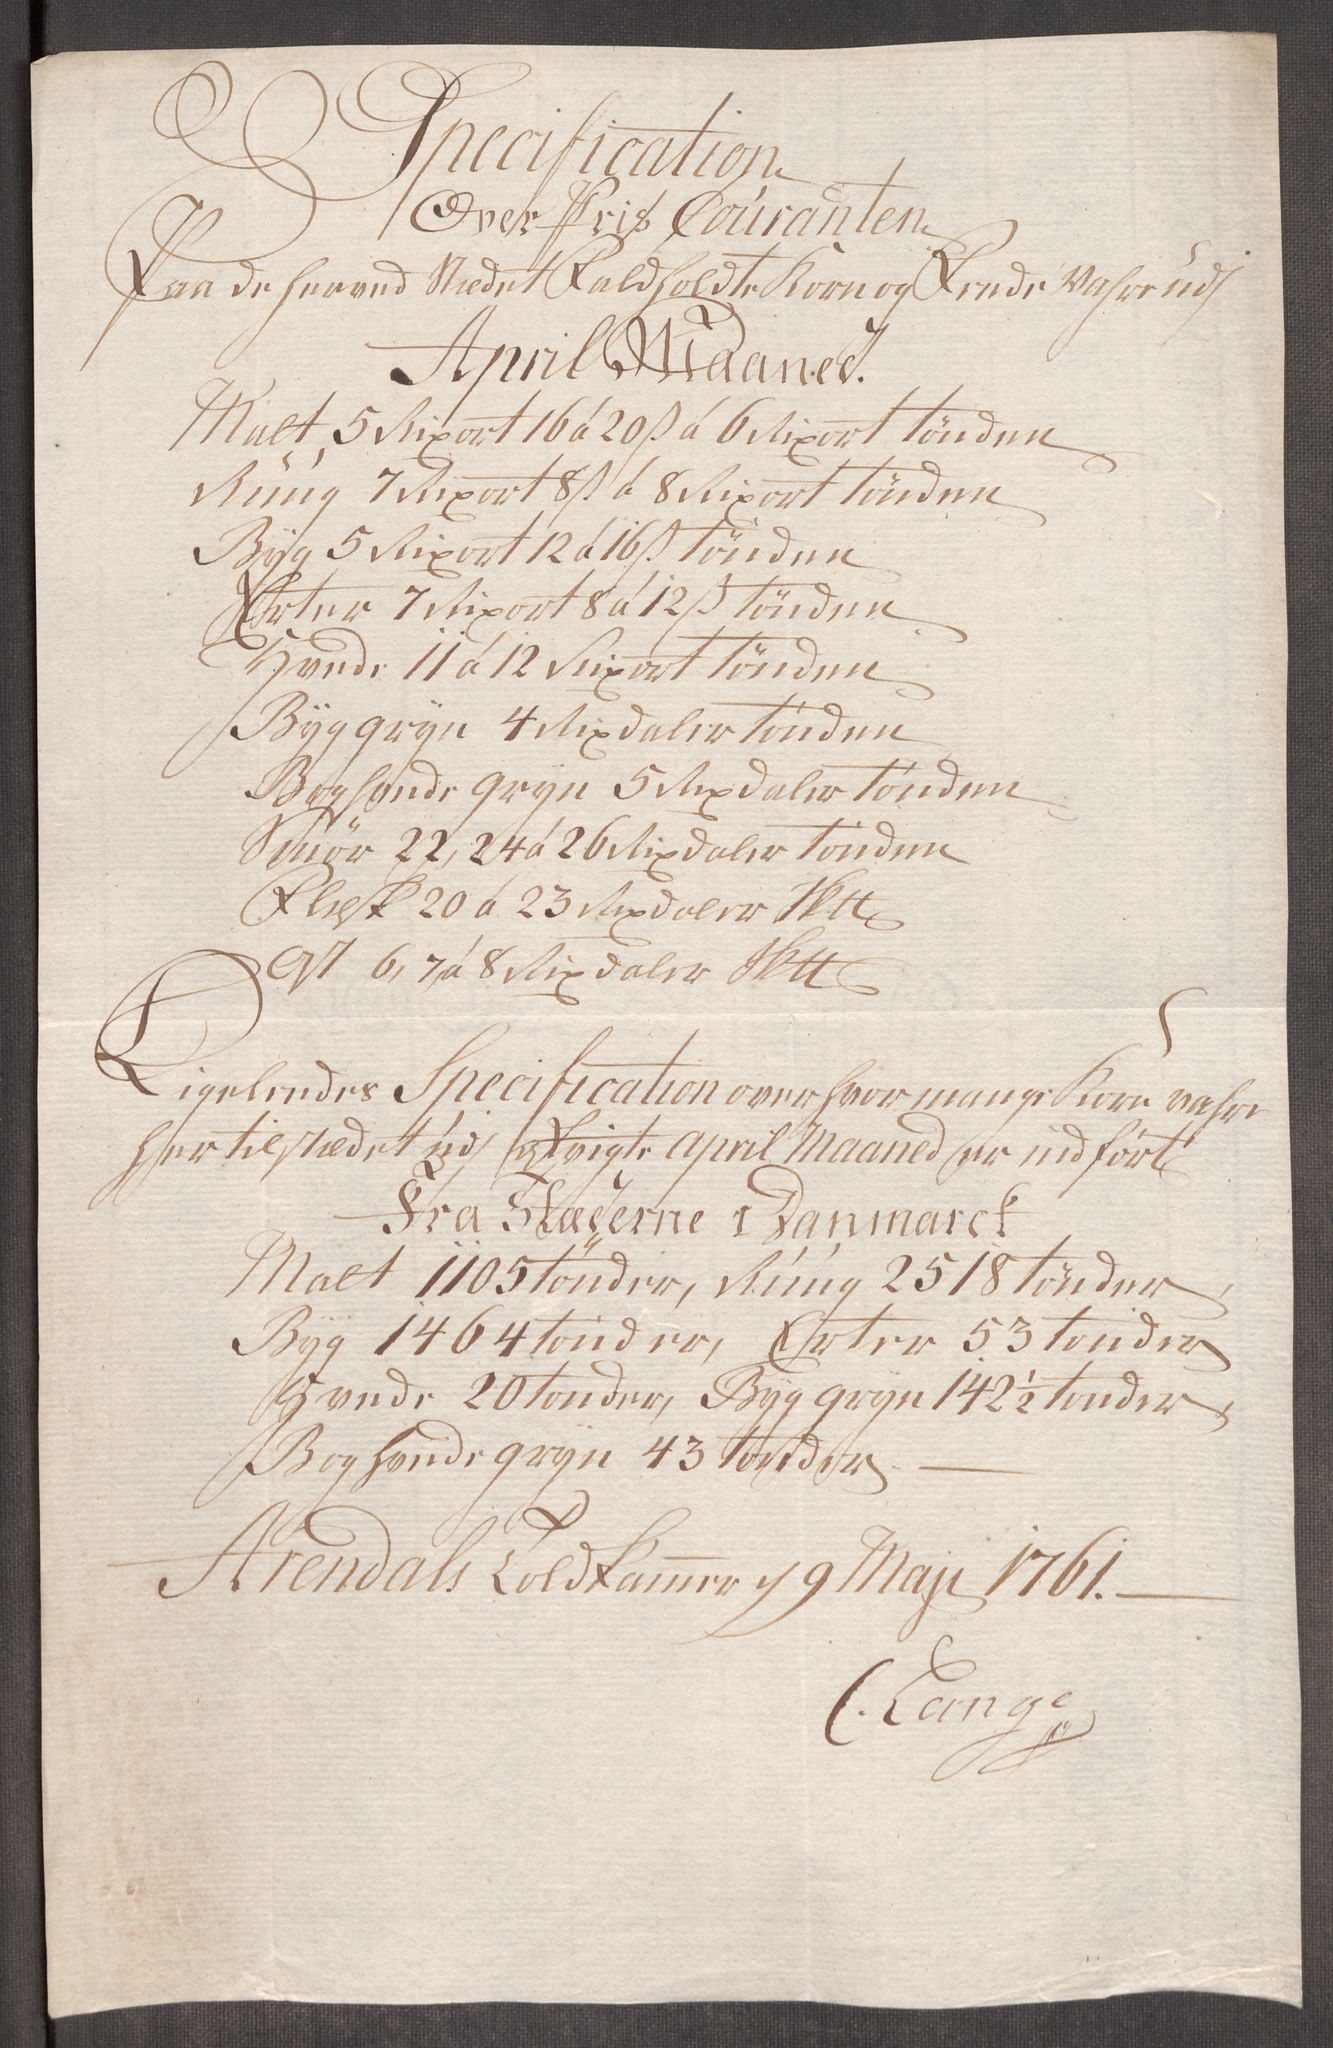 Specification
Over Pris Couranten
Paa de herved Stædet Faldholdte Korn og Fende Vahre udj
April Maaned.
Malt 5 Rixort 16 á 20 ß á 6 Rixort tönden
Rúúg 7 Rixort 8 ß á 8 Rixort tönden
Byg 5 Rixort 12 á 16 ß tönden
Erter 7 Rixort 8 á 12 ß tönden
Hvede 11 á 12 Rixort tönden
Byggryn 4 Rixdaler tönden
Boghvede gryn 5 Rixdaler tönden
Smör 22, 24 á 26 Rixdaler tönden
Flesk 20 á 23 Rixdaler
Ost 6, 7 á 8 Rixdaler
Ligeledes Specification over hvor mange Korn vahre
her til stædet udj april Maaned er indfört
Fra Stæderne i Danmarck
Malt 1105 tönder, Rúúg 2518 tönder,
Byg 1464 tönder, Erter 53 tönder
Hvede 20 tonder, Byg gryn 142 1/2 tonder,
Boghvede gryn 43 tonder
Arendals Toldkammer d 9 Maji 1761.
C. Lange